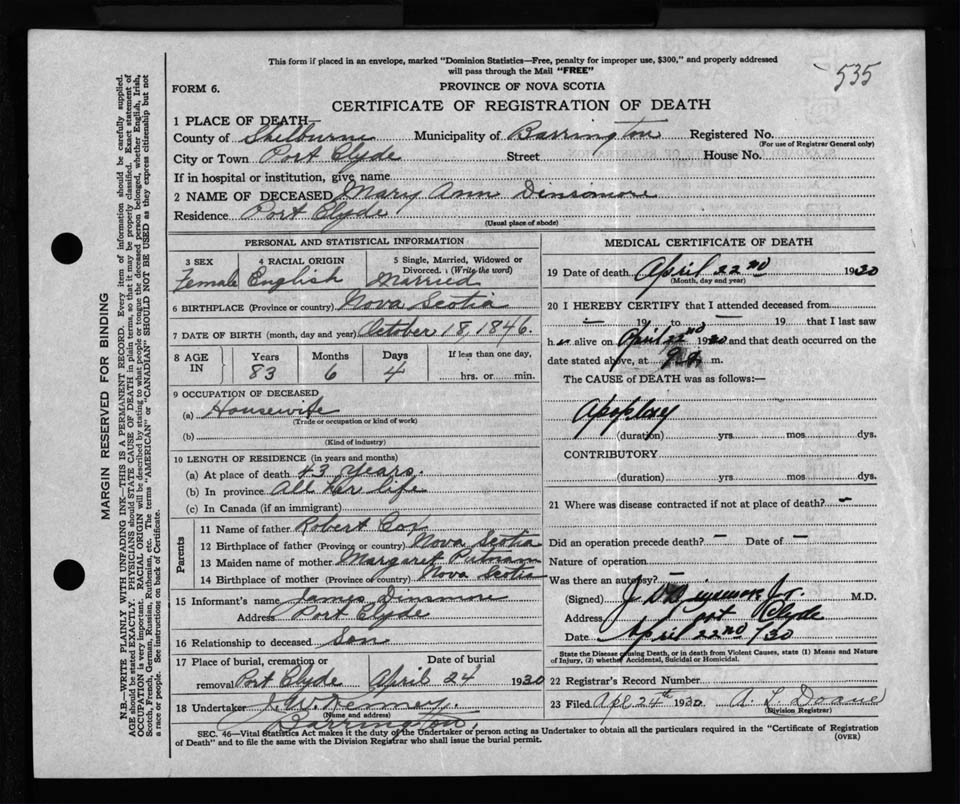 This form if placed in an envelope, marked "Dominion Statistics—Free, penalty for improper use, $300," and properly addressed
will pass through the Mail "FREE"
535
FORM 6.
PROVINCE OF NOVA SCOTIA
CERTIFICATE OF REGISTRATION OF DEATH
1 PLACE OF DEATH
County of Shelburne Municipality of Barrington Registered No.
(For use of Registrar General only)
City or Town Port Clyde Street House No.
If in hospital or institution, give name
2 NAME OF DECEASED Mary Ann Dinsmore
Residence Port Clyde
(Usual place of abode)
PERSONAL AND STATISTICAL INFORMATION
3 SEX 4 RACIAL ORIGIN 5 Single, Married, Widowed or
Divorced. (Write the word)
Female English Married
6 BIRTHPLACE (Province or country) Nova Scotia
7 DATE OF BIRTH (month, day and year) October 18, 1846.
8 AGE IN Years Months Days If less than one day,
83 6 4 hrs. or min.
9 OCCUPATION OF DECEASED
(a) Housewife
(Trade or occupation or kind of work)
(b)
(Kind of industry)
10 LENGTH OF RESIDENCE (in years and months)
(a) At place of death 43 years.
(b) In province All her life
(c) In Canada (if an immigrant)
Parents
11 Name of father Robert Cox
12 Birthplace of father (Province or country) Nova Scotia
13 Maiden name of mother Margaret Putnam
14 Birthplace of mother (Province or country) Nova Scotia
15 Informant's name James Dinsmore
Address Port Clyde
16 Relationship to deceased Son
17 Place of burial, cremation or Date of burial
removal Port Clyde April 24 1930
18 Undertaker
(Name and address)
Barrington,
MEDICAL CERTIFICATE OF DEATH
19 Date of death April 22nd 1930
(Month, day and year)
20 I HEREBY CERTIFY that I attended deceased from
— 19 to — 19 that I last saw
h er alive on April 22nd 1930 and that death occurred on the
date stated above, at m.
The CAUSE of DEATH was as follows:—
Apoplexy
(duration) yrs mos dys.
CONTRIBUTORY
(duration) yrs mos dys.
21 Where was disease contracted if not at place of death? —
Did an operation precede death? — Date of —
Nature of operation
Was there an autopsy? —
(Signed) M.D.
Address Port Clyde
Date April 22nd /30
State the Disease causing Death, or in death from Violent Causes, state (1) Means and Nature
of Injury, (2) whether Accidental, Suicidal or Homicidal.
22 Registrar's Record Number
23 Filed Apl 24th 1930
(Division Registrar)
SEC. 46—Vital Statistics Act makes it the duty of the Undertaker or person acting as Undertaker to obtain all the particulars required in the "Certificate of Registration
of Death" and to file the same with the Division Registrar who shall issue the burial permit.
(OVER)
MARGIN RESERVED FOR BINDING
N.B.—WRITE PLAINLY WITH UNFADING INK—THIS IS A PERMANENT RECORD. Every item of information should be carefully supplied.
AGE should be stated EXACTLY. PHYSICIANS should STATE CAUSE OF DEATH in plain terms, so that it may be properly classified. Exact statement of
OCCUPATION is very important. RACIAL ORIGIN will be described by stating to what people or tongue the deceased person belonged, whether English, Irish,
Scotch, French, German, Russian, Ruthenian, etc. The terms "AMERICAN" or "CANADIAN" SHOULD NOT BE USED as they express citizenship but not
a race or people. See instructions on back of Certificate.